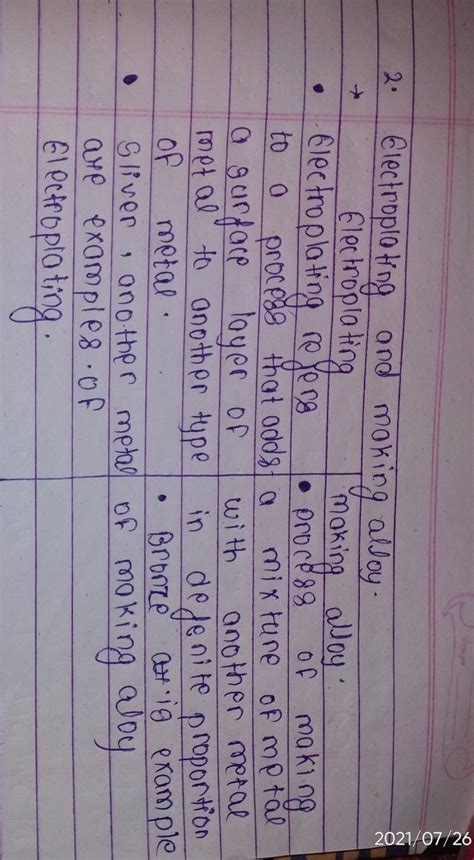 2. Electroplating and making alloy.
→ Electroplating
• Electroplating refers
to a process that adds
a surface layer of
metal to another type
of metal.
• Sliver, another metal
are examples.of
Electroplating.
making alloy.
• process of making
a mixture of metal
with another metal
in defenite proportion
• Bronze is example
of making alloy
2021/07/26